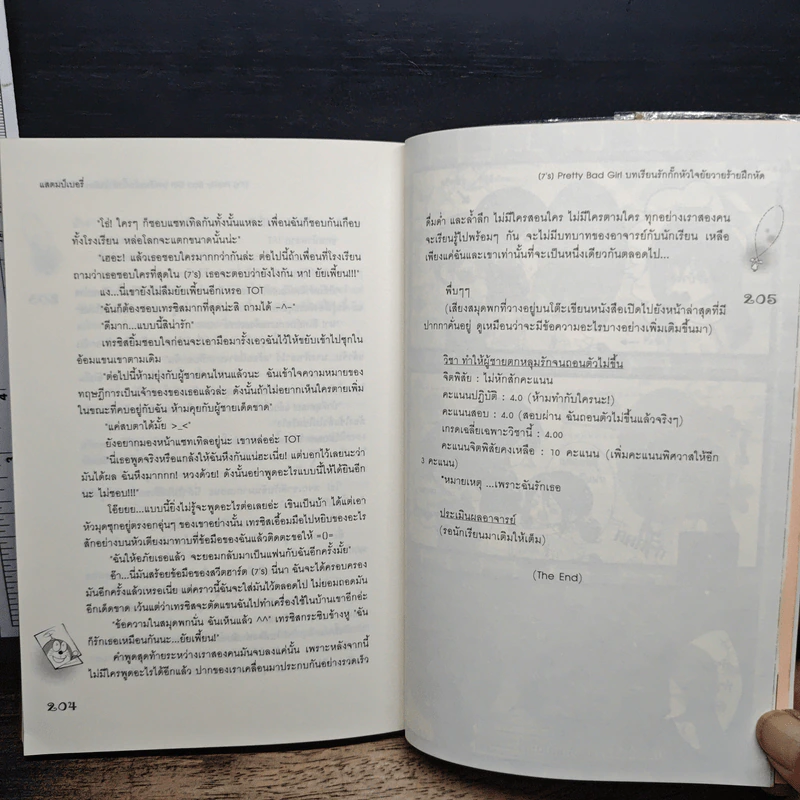 แสตมป์เบอรี่
"ใช่! ใครๆ ก็ชอบแซทเทิลกันทั้งนั้นแหละ เพื่อนฉันก็ชอบกันเกือบ
ทั้งโรงเรียน หล่อโลกจะแตกขนาดนั้นน่ะ"
"เฮอะ! แล้วเธอชอบใครมากกว่ากันล่ะ ต่อไปนี้ถ้าเพื่อนที่โรงเรียน
ถามว่าเธอชอบใครที่สุดใน (7's) เธอจะตอบว่ายังไงกัน หา! ยัยเพี้ยน!!!"
แง...นี่เขายังไม่ลืมยัยเพี้ยนอีกเหรอ TOT
"ฉันก็ต้องชอบเทรซิสมากที่สุดน่ะสิ ถามได้ -^-"
"ดีมาก...แบบนี้สิน่ารัก"
เทรซิสยิ้มชอบใจก่อนจะเอามือมารั้งเอวฉันไว้ให้ขยับเข้าไปซุกใน
อ้อมแขนเขาตามเดิม
"ต่อไปนี้ห้ามยุ่งกับผู้ชายคนไหนแล้วนะ ฉันเข้าใจความหมายของ
ทฤษฎีการเป็นเจ้าของของเธอแล้วล่ะ ดังนั้นถ้าไม่อยากเห็นใครตายเพิ่ม
ในขณะที่คบอยู่กับฉัน ห้ามคุยกับผู้ชายเด็ดขาด"
"แค่สบตาได้มั้ย >_<"
ยังอยากมองหน้าแซทเทิลอยู่นะ เขาหล่ออ่ะ TOT
"นี่เธอพูดจริงหรือแกล้งให้ฉันหึงกันแน่ฮะเนี่ย! แต่บอกไว้เลยนะว่า
มันได้ผล ฉันหึงมากกก! หวงด้วย! ดังนั้นอย่าพูดอะไรแบบนี้ให้ได้ยินอีก
นะ ไม่ชอบ!!!"
โอ๊ยยย...แบบนี้ยิ่งไม่รู้จะพูดอะไรต่อเลยอ่ะ เขินเป็นบ้า ได้แต่เอา
หัวมุดซุกอยู่ตรงอกอุ่นๆ ของเขาอย่างนั้น เทรซิสเอื้อมมือไปหยิบของอะไร
สักอย่างบนหัวเตียงมาทาบที่ข้อมือของฉันแล้วติดตะขอให้ =()=
"ฉันให้อภัยเธอแล้ว จะยอมกลับมาเป็นแฟนกับฉันอีกครั้งมั้ย"
อ๊า...นี่มันสร้อยข้อมือของสวีตฮาร์ต (7's) นี่นา ฉันจะได้ครอบครอง
มันอีกครั้งแล้วเหรอเนี่ย แต่คราวนี้ฉันจะใส่มันไว้ตลอดไป ไม่ยอมถอดมัน
อีกเด็ดขาด เว้นแต่ว่าเทรซิสจะตัดแขนฉันไปทำเครื่องใช้ในบ้านเขาอีกอ่ะ
"ข้อความในสมุดพกนั่น ฉันเห็นแล้ว ^^" เทรซิสกระซิบข้างหู "ฉัน
ก็รักเธอเหมือนกันนะ...ยัยเพี้ยน!"
คำพูดสุดท้ายระหว่างเราสองคนมันจบลงแค่นั้น เพราะหลังจากนี้
ไม่มีใครพูดอะไรได้อีกแล้ว ปากของเราเคลื่อนมาประกบกันอย่างรวดเร็ว
204
(7's) Pretty Bad Girl บทเรียนรักกิ๊กหัวใจยัยวายร้ายฝึกหัด
ดื่มด่ำ และล้ำลึก ไม่มีใครสอนใคร ไม่มีใครตามใคร ทุกอย่างเราสองคน
จะเรียนรู้ไปพร้อมๆ กัน จะไม่มีบทบาทของอาจารย์กับนักเรียน เหลือ
เพียงแค่ฉันและเขาเท่านั้นที่จะเป็นหนึ่งเดียวกันตลอดไป...
พึ่บๆๆ
(เสียงสมุดพกที่วางอยู่บนโต๊ะเขียนหนังสือเปิดไปยังหน้าล่าสุดที่มี
ปากกาคั่นอยู่ ดูเหมือนว่าจะมีข้อความอะไรบางอย่างเพิ่มเติมขึ้นมา)
205
วิชา ทำให้ผู้ชายตกหลุมรักจนถอนตัวไม่ขึ้น
จิตพิสัย : ไม่หักสักคะแนน
คะแนนปฏิบัติ : 4.0 (ห้ามทำกับใครนะ!)
คะแนนสอบ : 4.0 (สอบผ่าน ฉันถอนตัวไม่ขึ้นแล้วจริงๆ)
เกรดเฉลี่ยเฉพาะวิชานี้ : 4.00
คะแนนจิตพิสัยคงเหลือ : 10 คะแนน (เพิ่มคะแนนพิศวาสให้อีก
3 คะแนน)
*หมายเหตุ ...เพราะฉันรักเธอ
ประเมินผลอาจารย์
(รอนักเรียนมาเติมให้เต็ม)
(The End)